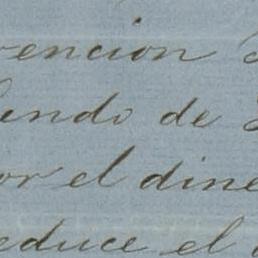 vencion
endo de
or el dine
educe el